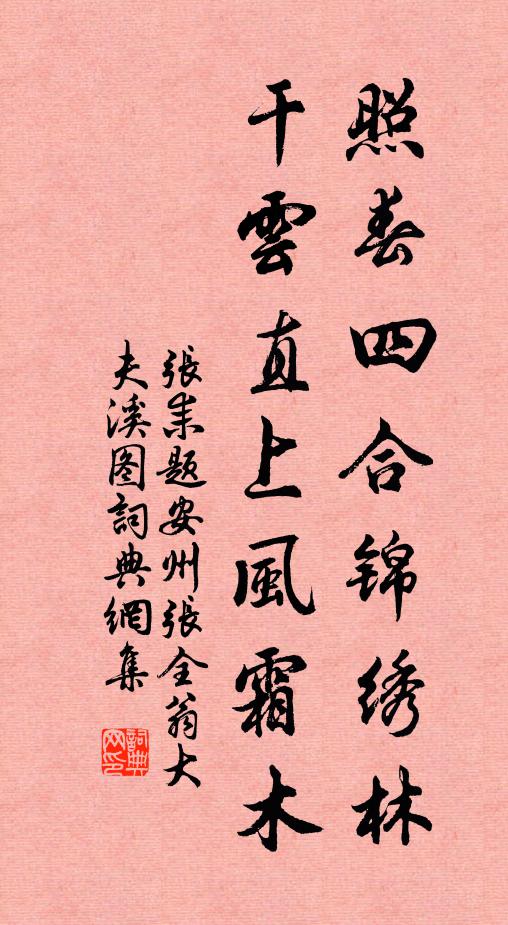 照春四合锦绣林
干雲直上風霜木
張耒题安州張全翁大
夫溪图詞典網集
詞典网印